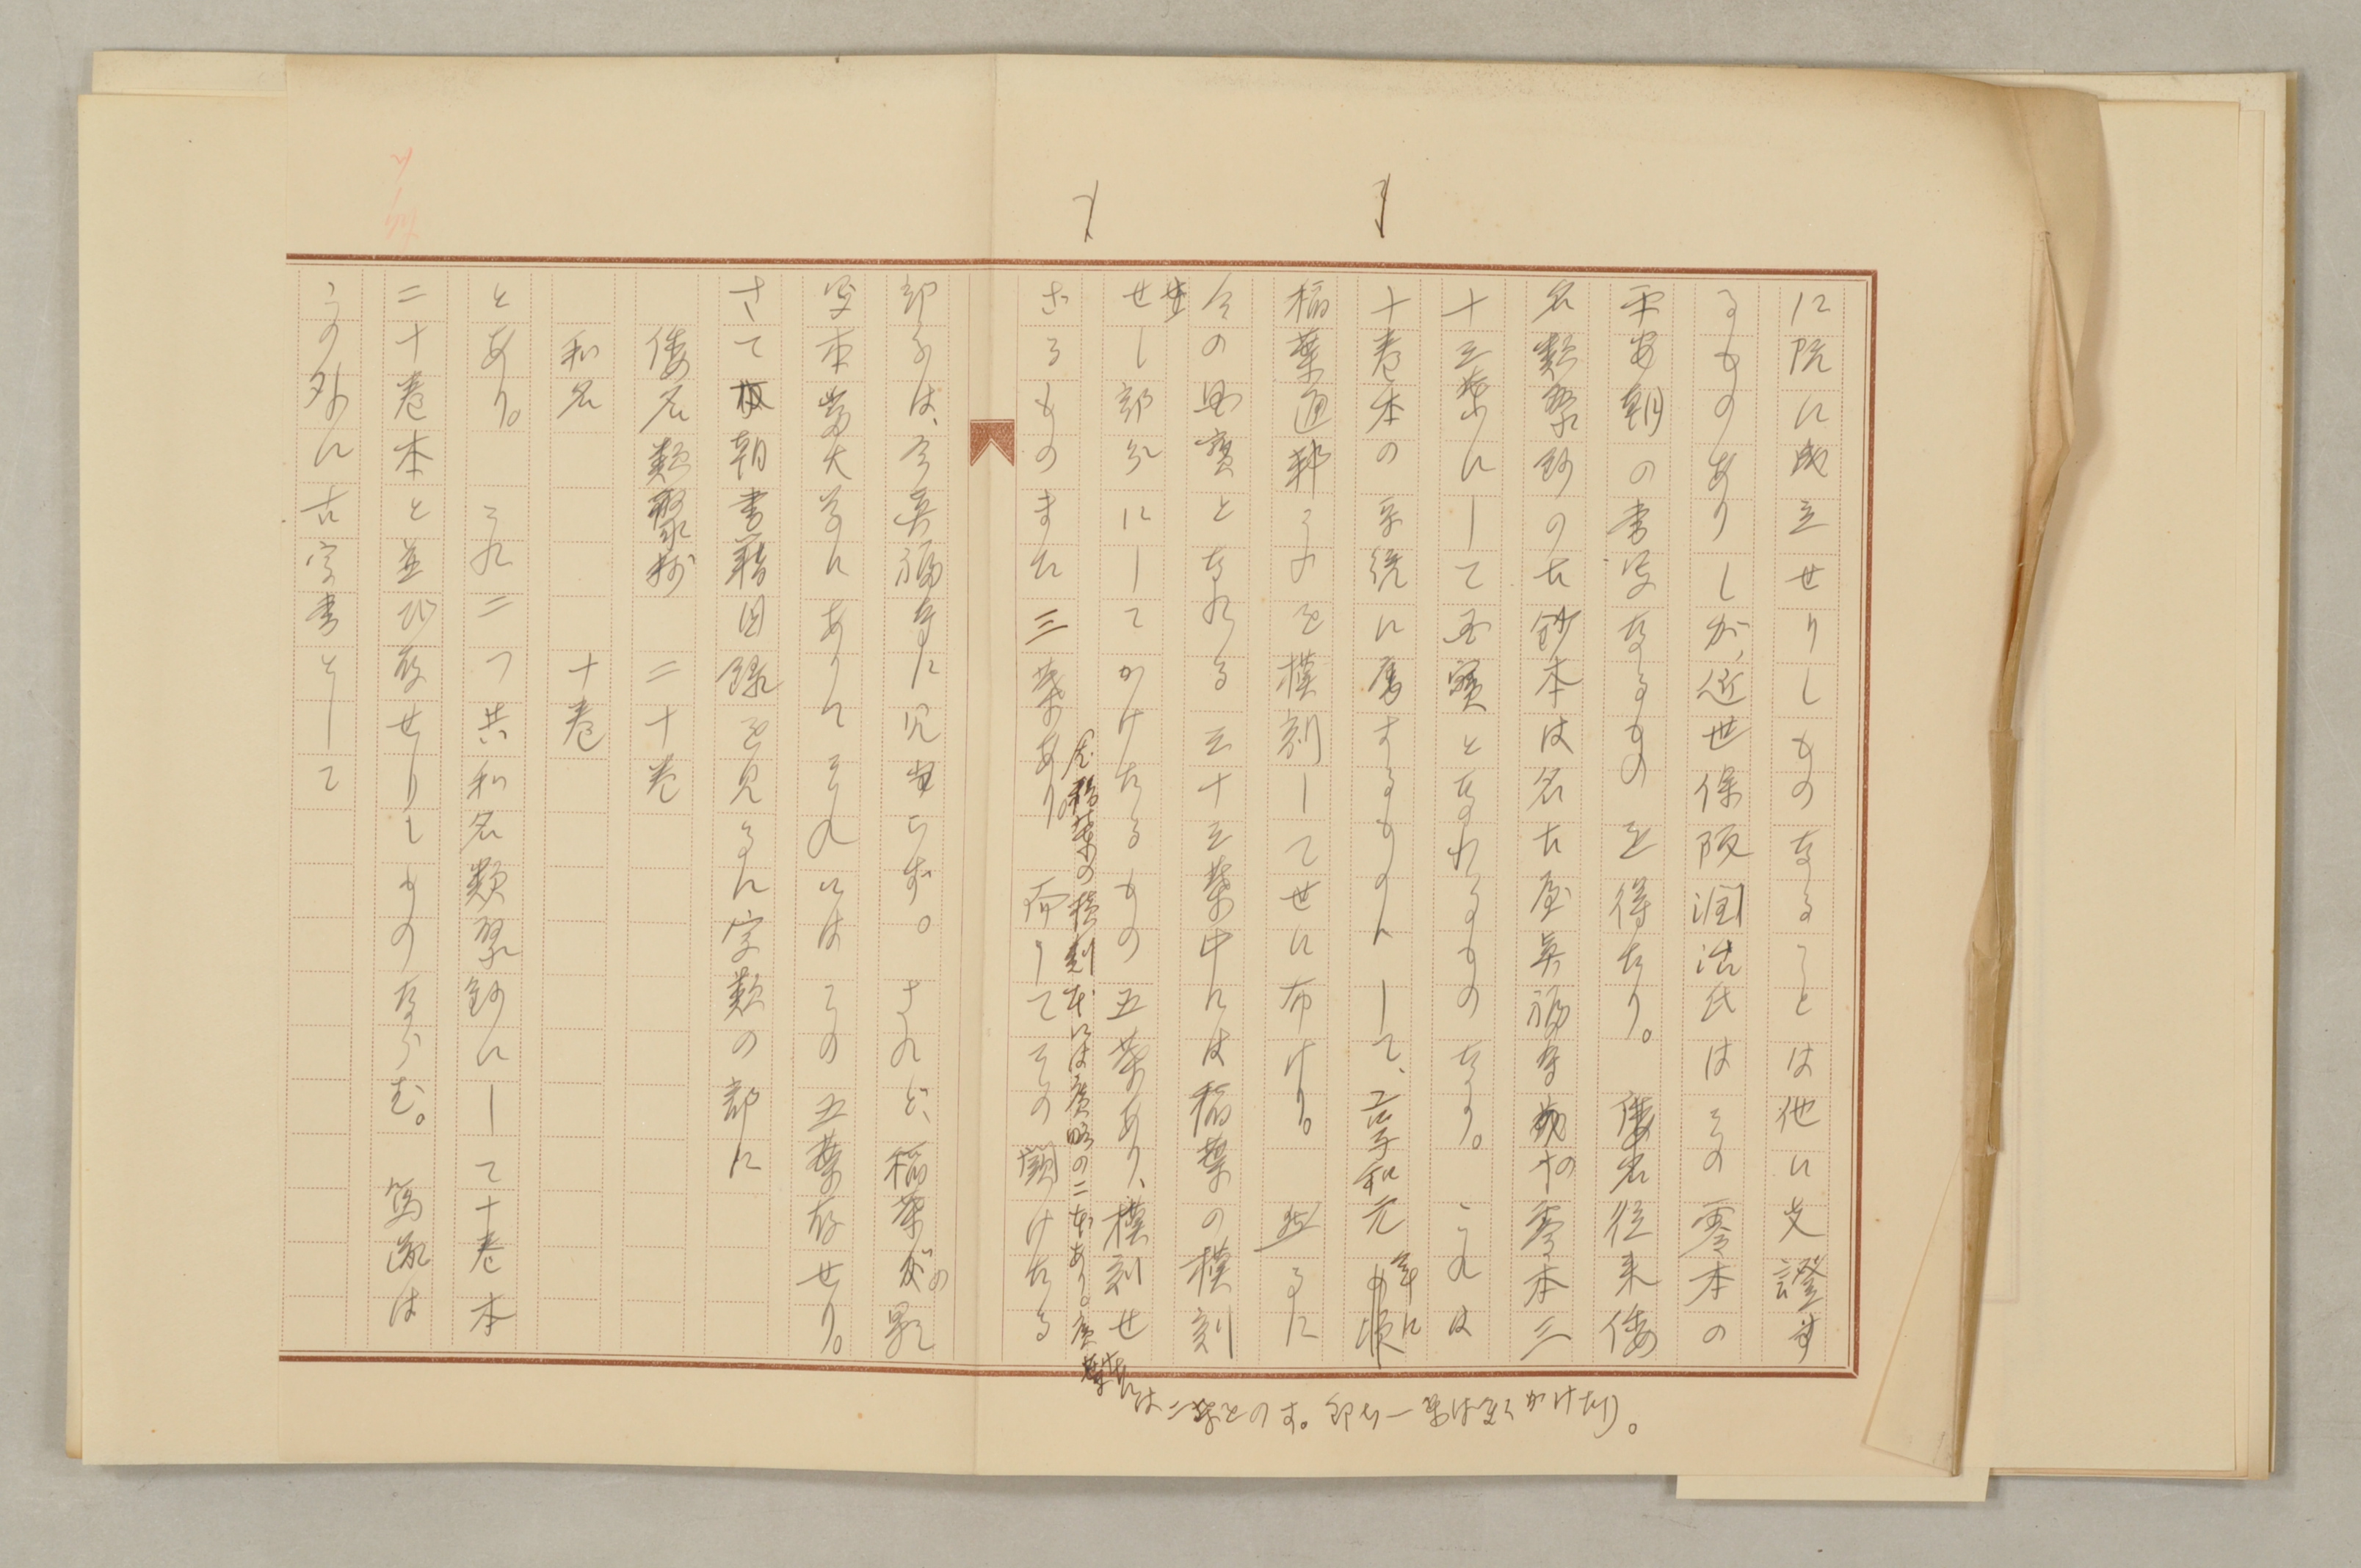 に既に成立せりしものなることは他に文證す
るものありしが、近世保阪潤治氏はその零本の
平安朝の書写なるものを得たり。倭名往来倭
名類聚鈔の古鈔本は名古屋真福寺の零本三
十三葉にして国寶となれるものなり。これは
十巻本の系統に属するものにして、享和元年に
稲葉通邦そのを模刻して世に布けり。然るに
今の国寳となれる三十三葉中には稲葉の模刻
せし部分にしてかけたるもの五葉あり、模刻せ
ざるものまた三葉あり。而してその闕けたる
稲葉の模刻本には廣略の二本あり。廣
は二葉をのす。即ち一葉は全くかけたり。
部分は、今真福寺に見当らず。されど、稲葉の影
写本帝大などにありてそれにはその五葉存せり。
さて本朝書籍目録を見るに字類の部に
倭名類聚抄　二十巻
和名　十巻
とあり。これ二つ共和名類聚鈔にして十巻本
二十巻本と並び存せりしものならむ。篤隆は
この外に古字書として